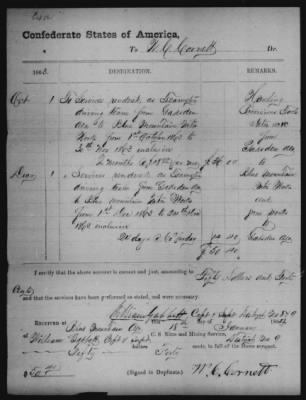 Confederate States of America,
To W. C. Cornett Dr.
1863. DESIGNATION. REMARKS.
Oct 1 To Services rendered as Teamster Hauling
driving team from Gadsden Provisions Tools
Ala to Blue Mountain Nitre
Works from 1st October 1863 to from
30th Nov 1863 inclusive Gadsden Ala
2 months @ per mo to
Decr 1 Services rendered as Teamster Blue Mountain
driving team from Gadsden Ala Nitre Works
to Blue Mountain Nitre Works and
from 1st Dec 1863 to from works
1863 inclusive to
days @ Gadsden Ala
$50 40
I certify that the above account is correct and just, amounting to Fifty Dollars and Forty
Cents
and that the services have been performed as stated, and were necessary.
William Gabbett Capt & Supt District No 9
RECEIVED at Blue Mountain this 18th day of January 1864
of William Gabbett Capt & Supt C. S. Nitre and Mining Service, District No 9
Fifty dollars Forty cents, in full of the above account.
$50 40 (Signed in Duplicate.) W. C. Cornett